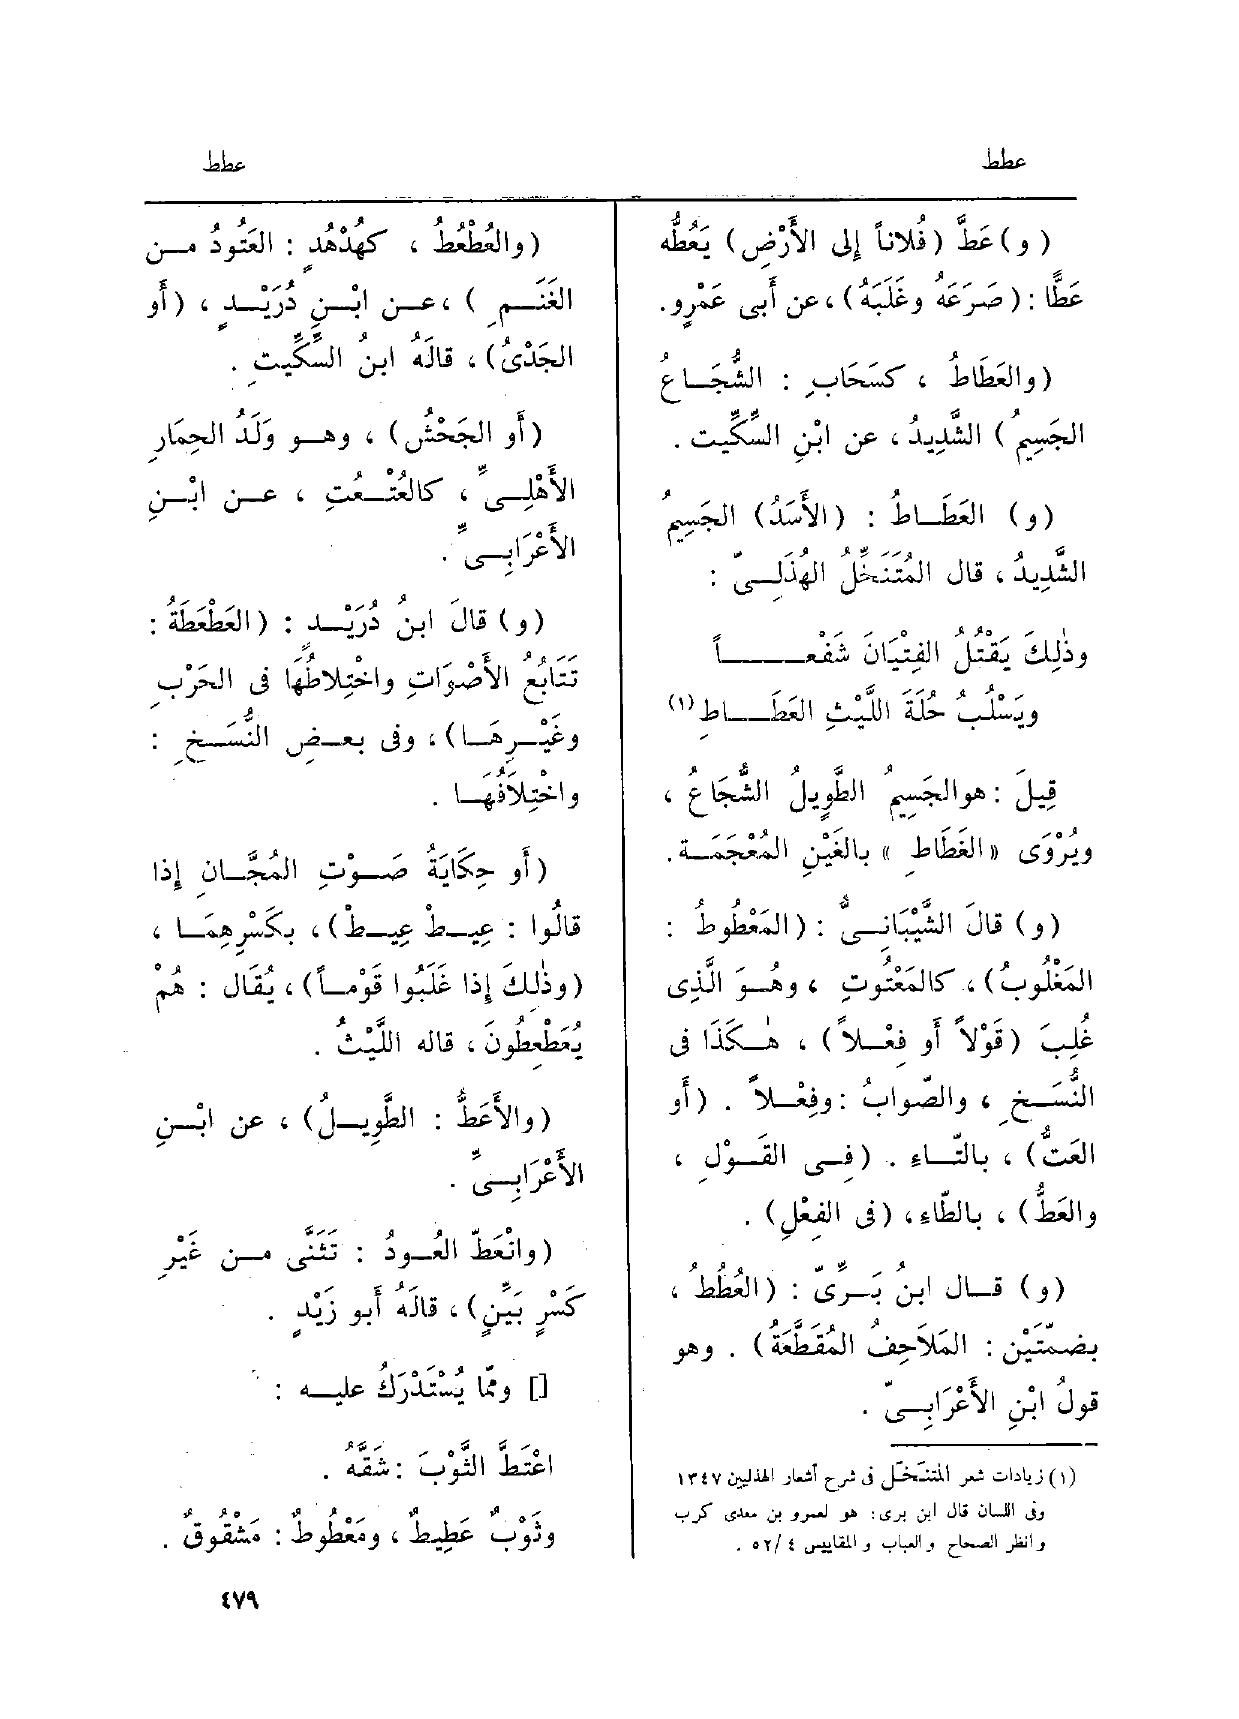 عطط
عطط
( و ) عَطَّ ( فُلاناً إلى الأَرْضِ ) يَعُطُّه
عَطًّا : ( صَرَعَهُ وغَلَبَهُ ) ، عن أَبى عَمْرٍو .
( والعَطَاطُ ، كسَحَابٍ : الشُّجَـاعُ
الجَسِيمُ ) الشَّدِيدُ ، عن ابْنِ السِّكِّيت .
( و ) العَطَـاطُ : ( الأَسَدُ ) الجَسِيمُ
الشَّدِيدُ ، قال المُتَنَخِّلُ الهُذَلِـىّ :
وذٰلِكَ يَقْتُلُ الفِتْيَانَ شَفْعـــاً
ويَسْلُبُ حُلَةَ اللَّيْثِ العَطَــاطِ (١)
قِيلَ : هو الجَسِيمُ الطَّوِيلُ الشُّجَاعُ ،
ويُرْوَى « الغَطَاطِ » بالغَيْنِ المُعْجَمَـة .
( و ) قالَ الشَّيْبَانِــىُّ : ( المَعْطُوطُ :
المَغْلُوبُ ) ، كالمَعْتُوتِ ، وهُــوَ الَّذِى
غُلِبَ ( قَوْلاً أو فِعْــلاً ) ، هٰــكَذَا فى
النُّسَــخِ ، والصّوابُ : وفِعْــلاً . ( أَو
العَتُّ ) ، بالتّــاءِ . ( فِــى القَــوْلِ ،
والعَطُّ ) ، بالطّاءِ ، ( فى الفِعْلِ ) .
( و ) قــال ابنُ بَــرِّىّ : ( العُطُط ،
بضمّتَيْن : المَلَاحِفُ المُقَطَّعَةُ ) . وهو
قولُ ابْنِ الأَعْرَابِــىّ .
(١) زيادات شعر المتنخّل فى شرح أشعار الهذليين ١٣٤٧
وفى اللسان قال ابن برى : هو لعمرو بن معدى كرب
وانظر الصحاح والعباب والمقاييس ٤ /٥٢ .
( والعُطْعُطُ ، كهُدْهُدٍ : العَتُودُ مــن
الغَنَــمِ ) ، عــن ابْــنِ دُرَيْــدٍ ، ( أَو
الجَدْىُ ) ، قالَهُ ابنُ السِّكِّيتِ .
( أَو الجَحْشُ ) ، وهــو وَلَدُ الحِمَارِ
الأَهْلِــىِّ ، كالعُتْــعُتِ ، عــن ابْــنِ
الأَعْرَابِــىِّ .
( و ) قالَ ابنُ دُرَيْــد : ( العَطْعَطَةُ :
تَتَابُعُ الأَصْوَاتِ واخْتِلاطُهَا فى الحَرْبِ
وغَيْــرِهَــا ) ، وفى بعــض النُّسَــخِ :
واخْتِلاَفُهَــا .
( أَو حِكَايَةُ صَــوْتِ المُجَّــانِ إذا
قالُوا : عِيــطْ عِيــطْ ) ، بكَسْرِهِمَــا ،
( وذٰلِكَ إذا غَلَبُوا قَوْمــاً ) ، يُقَال : هُمْ
يُعَطْعِطُونَ ، قاله اللَّيْثُ .
( والأَعَطُّ : الطَّوِيــلُ ) ، عن ابْــنِ
الأَعْرَابِــىِّ .
( وانْعَطَّ العُــودُ : تَثَنَّى مــن غَيْرِ
كَسْرٍ بَيِّنٍ ) ، قالَهُ أَبو زَيْدٍ .
[] وممّا يُسْتَدْرَكُ عليــه :
اعْتَطَّ الثَّوْبَ : شَقَّهُ .
وثَوْبٌ عَطِيطٌ ، ومَعْطُوطٌ : مَشْقُوقٌ .
٤٧٩